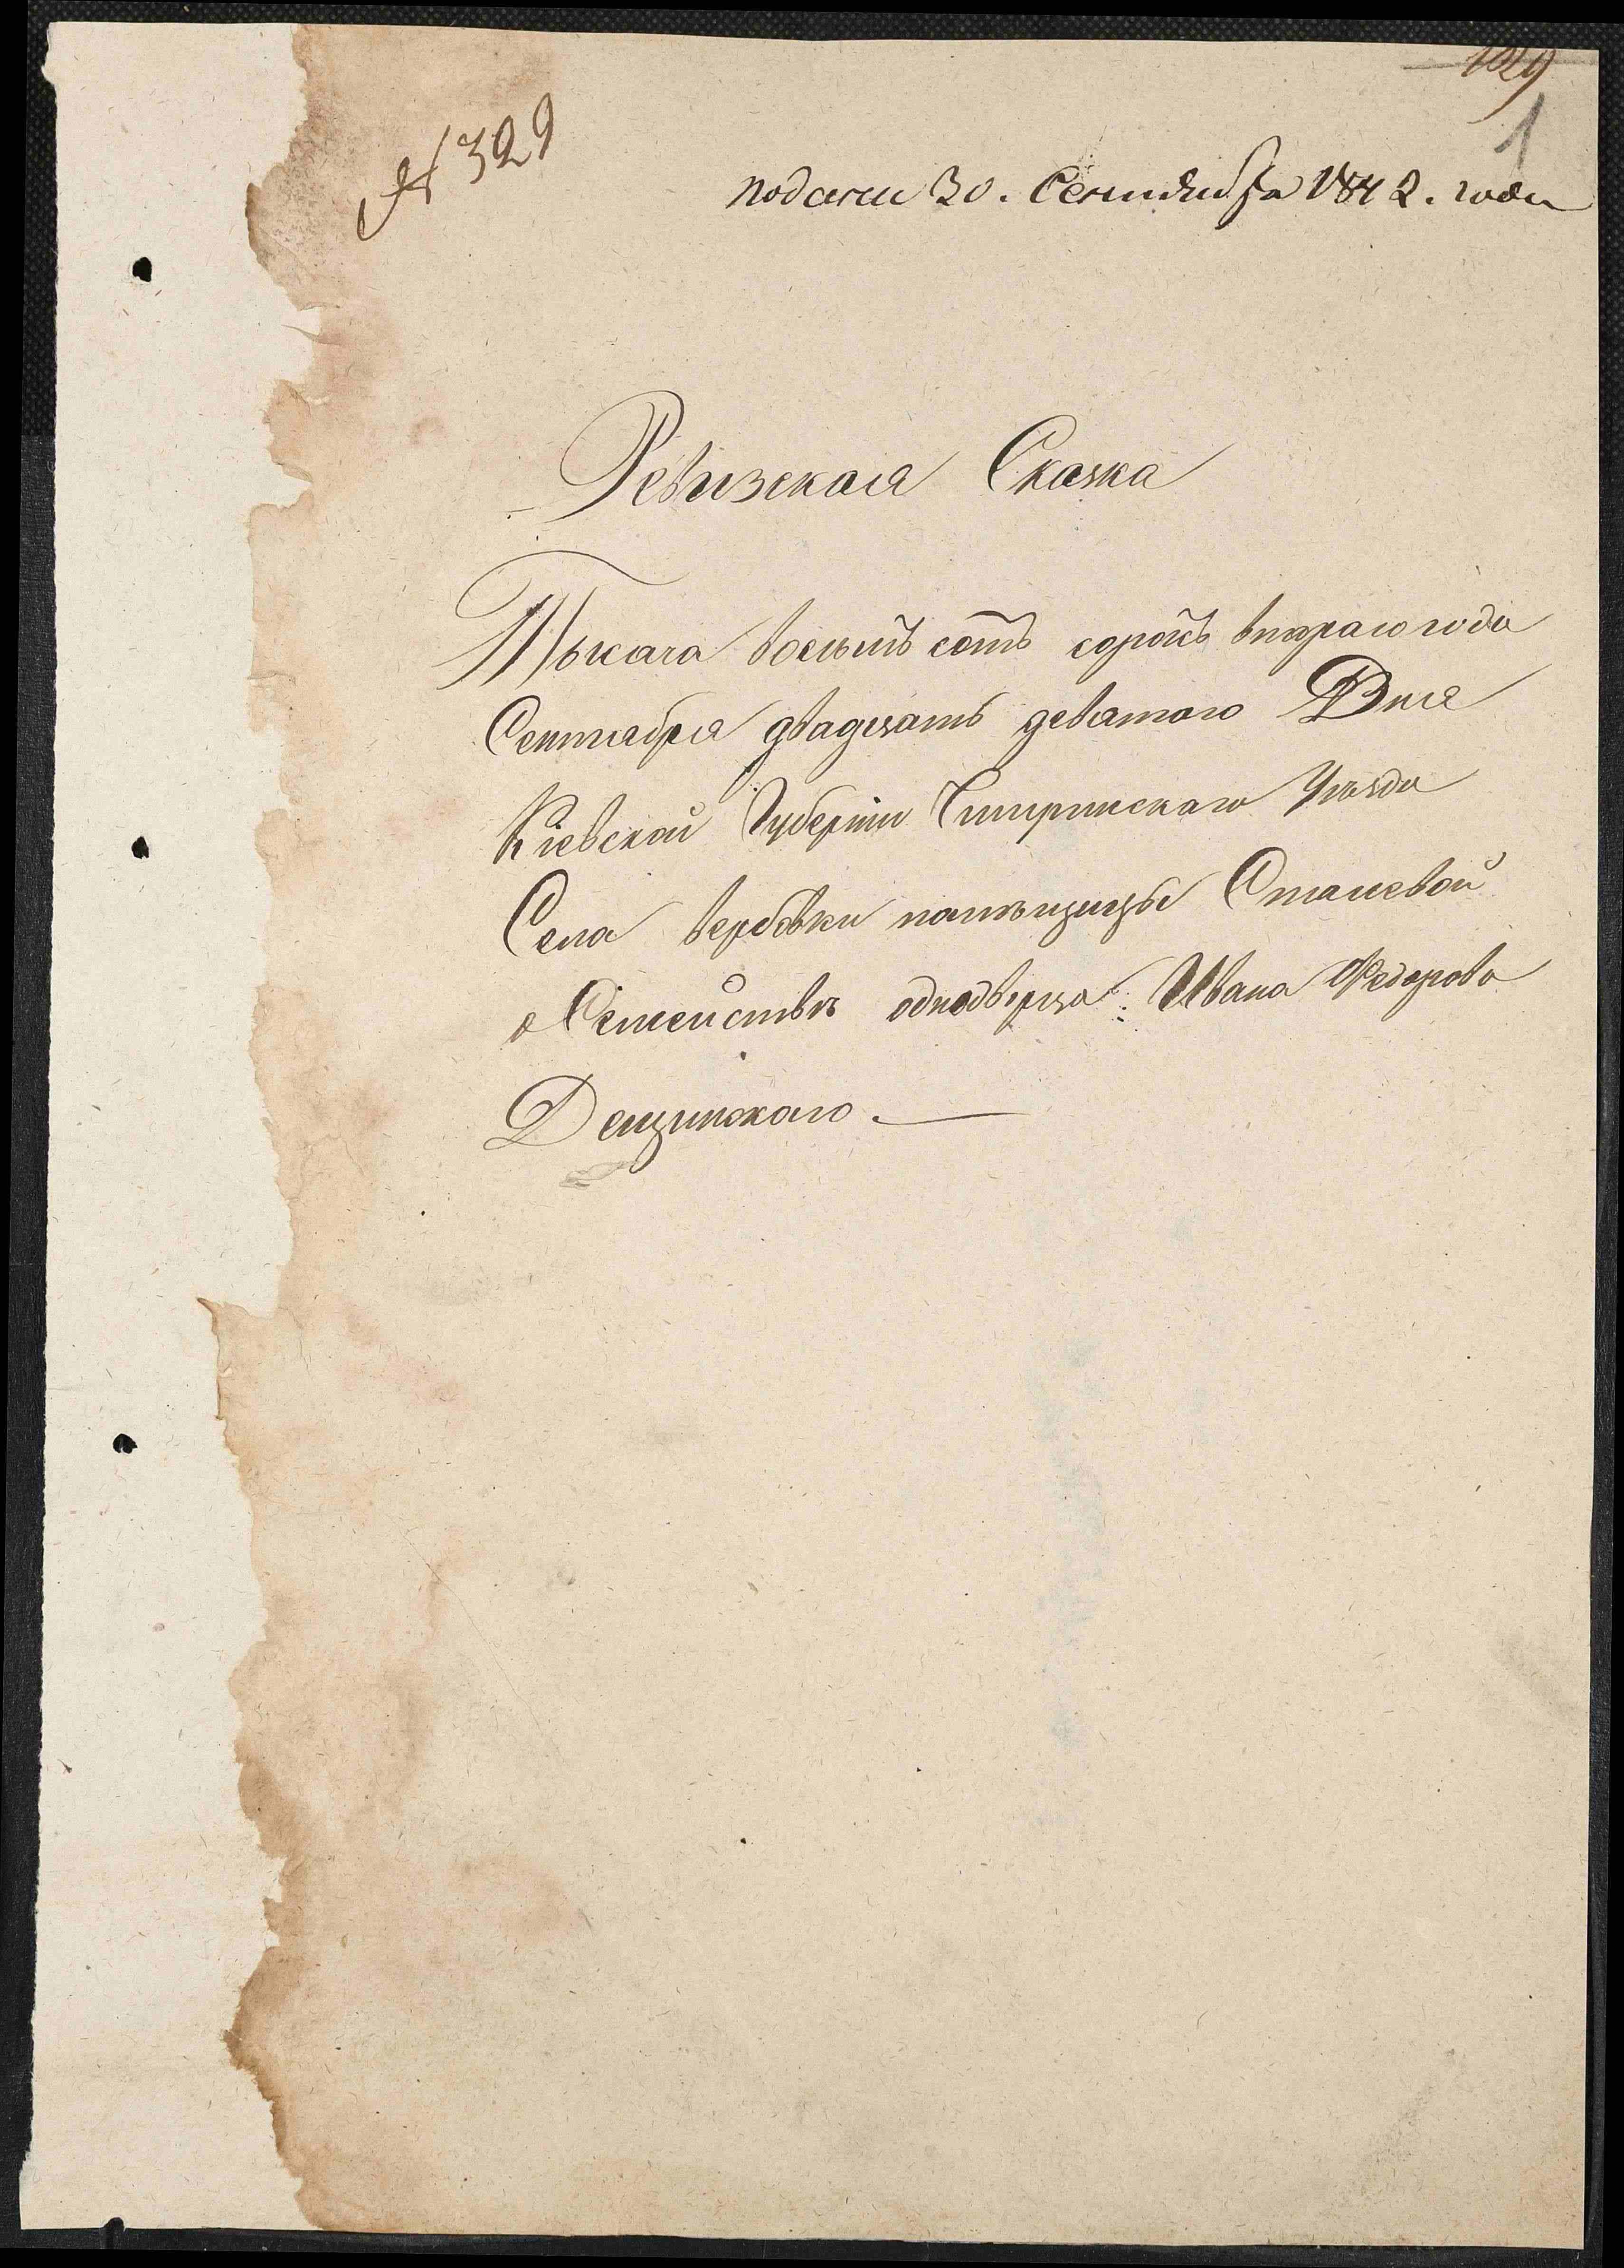 1029
1
№ 329
подана 30. Сентября 1842. года
Ревизская Сказка
Тысяча восемъ сотъ сорокъ втораго года
Сентября двадцать девятого Дня
Кіевской Губерніи Чигиринскаго Уѣзда
Села вербовки помѣщицы
о Семействѣ однодворца Ивана Федорова
Дещинскаго